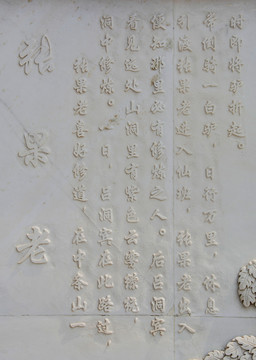 张果老
张果老喜好修道,在中条山一
洞中修炼。一日,吕洞宾在此路过,
看见远处山洞里有紫色云雾缭绕,
便知那里必有修炼之人。后吕洞宾
引渡张果老进入仙班,张果老出入
常倒骑一白驴,日行万里,休息
时即将驴折起。